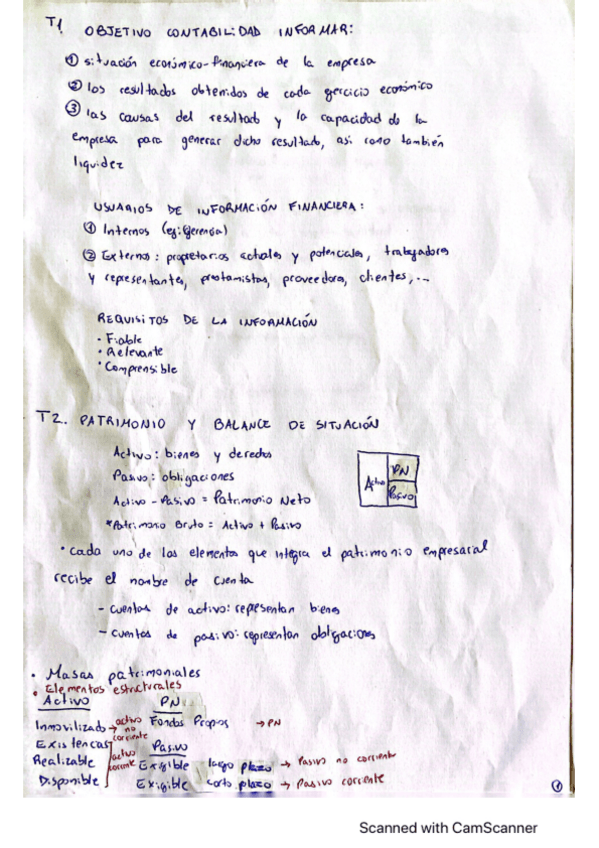 T1 OBJETIVO CONTABILIDAD INFORMAR:
① situación económico-financiera de la empresa
② los resultados obtenidos de cada ejercicio económico
③ las causas del resultado y la capacidad de la
empresa para generar dicho resultado, así como también
liquidez
USUARIOS DE INFORMACIÓN FINANCIERA:
① Internos (ej: Gerencia)
② Externos: propietarios actuales y potenciales, trabajadores
y representantes, prestamistas, proveedores, clientes,...
REQUISITOS DE LA INFORMACIÓN
• Fiable
• Relevante
• Comprensible
T2. PATRIMONIO Y BALANCE DE SITUACIÓN
Activo: bienes y derechos
Pasivo: obligaciones
Activo - Pasivo = Patrimonio Neto
*Patrimonio Bruto = Activo + Pasivo
Activo PN
Pasivo
• cada uno de los elementos que integra el patrimonio empresarial
recibe el nombre de cuenta
- cuentas de activo: representan bienes
- cuentas de pasivo: representan obligaciones
• Masas patrimoniales
• Elementos estructurales
Activo PN
Inmovilizado → activo no corriente Fondos Propios → PN
Existencias Pasivo
Realizable activo corriente Exigible largo plazo → Pasivo no corriente
Disponible Exigible corto plazo → Pasivo corriente
1
Scanned with CamScanner